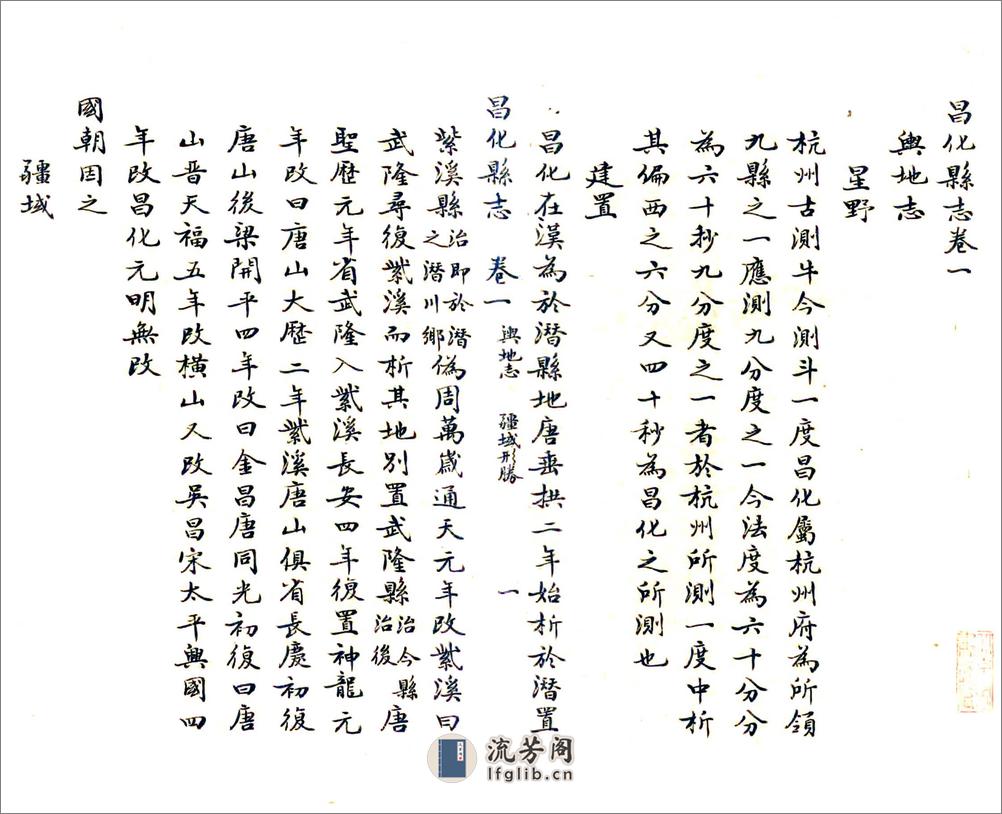 昌化縣志卷一
輿地志
星野
杭州古測牛今測斗一度昌化屬杭州府為所領
九縣之一應測九分度之一今法度為六十分分
為六十秒九分度之一者於杭州所測一度中析
其偏西之六分又四十秒為昌化之所測也
建置
昌化在漢為於潛縣地唐垂拱二年始析於潛置
昌化縣志 卷一 輿地志 疆域形勝 一
紫溪縣治即於潛之潛川鄉偽周萬歲通天元年改紫溪曰
武隆尋復紫溪而析其地別置武隆縣治今縣治後唐
聖歷元年省武隆入紫溪長安四年復置神龍元
年改曰唐山大歷二年紫溪唐山俱省長慶初復
唐山後梁開平四年改曰金昌唐同光初復曰唐
山晋天福五年改橫山又改吳昌宋太平興國四
年改昌化元明無改
國朝因之
疆域
流芳阁
lfglib.cn